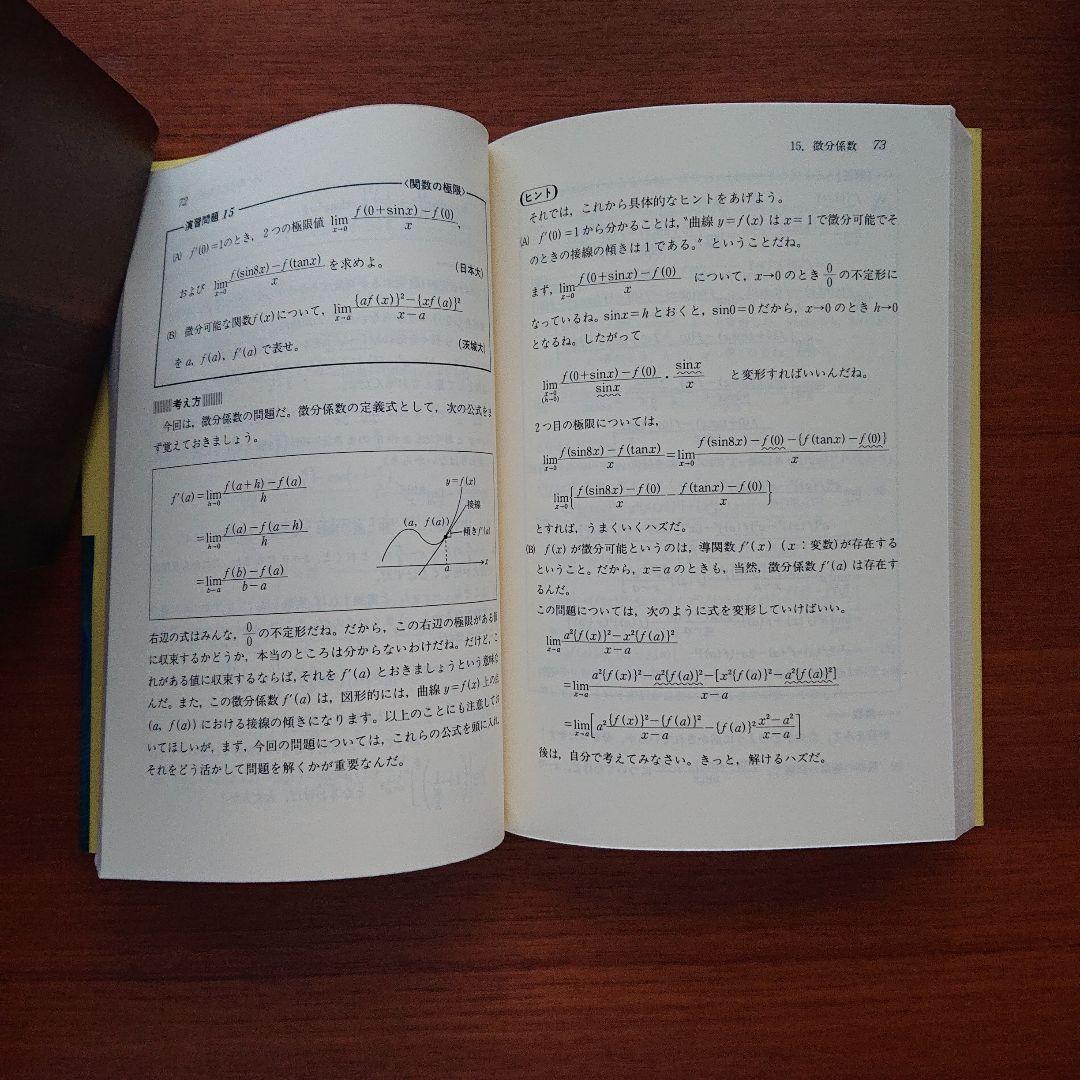 72
〈関数の極限〉
演習問題 15
(A) f'(0)=1のとき, 2つの極限値 lim_{x→0} {f(0+sinx)−f(0)}/x,
および lim_{x→0} {f(sin8x)−f(tanx)}/x を求めよ。 (日本大)
(B) 微分可能な関数f(x)について, lim_{x→a} ({af(x)}²−{xf(a)}²)/(x−a)
をa, f(a), f'(a)で表せ。 (茨城大)
考え方
今回は, 微分係数の問題だ。微分係数の定義式として, 次の公式をま
ず覚えておきましょう。
f'(a)=lim_{h→0} {f(a+h)−f(a)}/h
=lim_{h→0} {f(a)−f(a−h)}/h
=lim_{b→a} {f(b)−f(a)}/(b−a)
y=f(x)
接線
(a, f(a))
傾きf'(a)
a
x
右辺の式はみんな, 0/0 の不定形だね。だから, この右辺の極限がある値
に収束するかどうか, 本当のところは分からないわけだね。だけど, こ
れがある値に収束するならば, それを f'(a) とおきましょうという意味な
んだ。また, この微分係数 f'(a) は, 図形的には, 曲線 y=f(x) 上の点
(a, f(a)) における接線の傾きになります。以上のことにも注意してお
いてほしいが, まず, 今回の問題については, これらの公式を頭に入れ,
それをどう活かして問題を解くかが重要なんだ。
15. 微分係数 73
ヒント
それでは, これから具体的なヒントをあげよう。
(A) f'(0)=1から分かることは, "曲線 y=f(x) は x=1 で微分可能でそ
のときの接線の傾きは1である。" ということだね。
まず, lim_{x→0} {f(0+sinx)−f(0)}/x について, x→0 のとき 0/0 の不定形に
なっているね。sinx=h とおくと, sin0=0 だから, x→0 のとき h→0
となるね。したがって
lim_{x→0 (h→0)} {f(0+sinx)−f(0)}/sinx · sinx/x と変形すればいいんだね。
2つ目の極限については,
lim_{x→0} {f(sin8x)−f(tanx)}/x =lim_{x→0} [f(sin8x)−f(0)−{f(tanx)−f(0)}]/x
lim_{x→0} { {f(sin8x)−f(0)}/x − {f(tanx)−f(0)}/x }
とすれば, うまくいくハズだ。
(B) f(x)が微分可能というのは, 導関数 f'(x) (x:変数)が存在する
ということ。だから, x=aのときも, 当然, 微分係数 f'(a) は存在す
るんだ。
この問題については, 次のように式を変形していけばいい。
lim_{x→a} (a²{f(x)}²−x²{f(a)}²)/(x−a)
=lim_{x→a} (a²{f(x)}²−a²{f(a)}²−[x²{f(a)}²−a²{f(a)}²])/(x−a)
=lim_{x→a} [a² ({f(x)}²−{f(a)}²)/(x−a) −{f(a)}² (x²−a²)/(x−a)]
後は, 自分で考えてみなさい。きっと, 解けるハズだ。